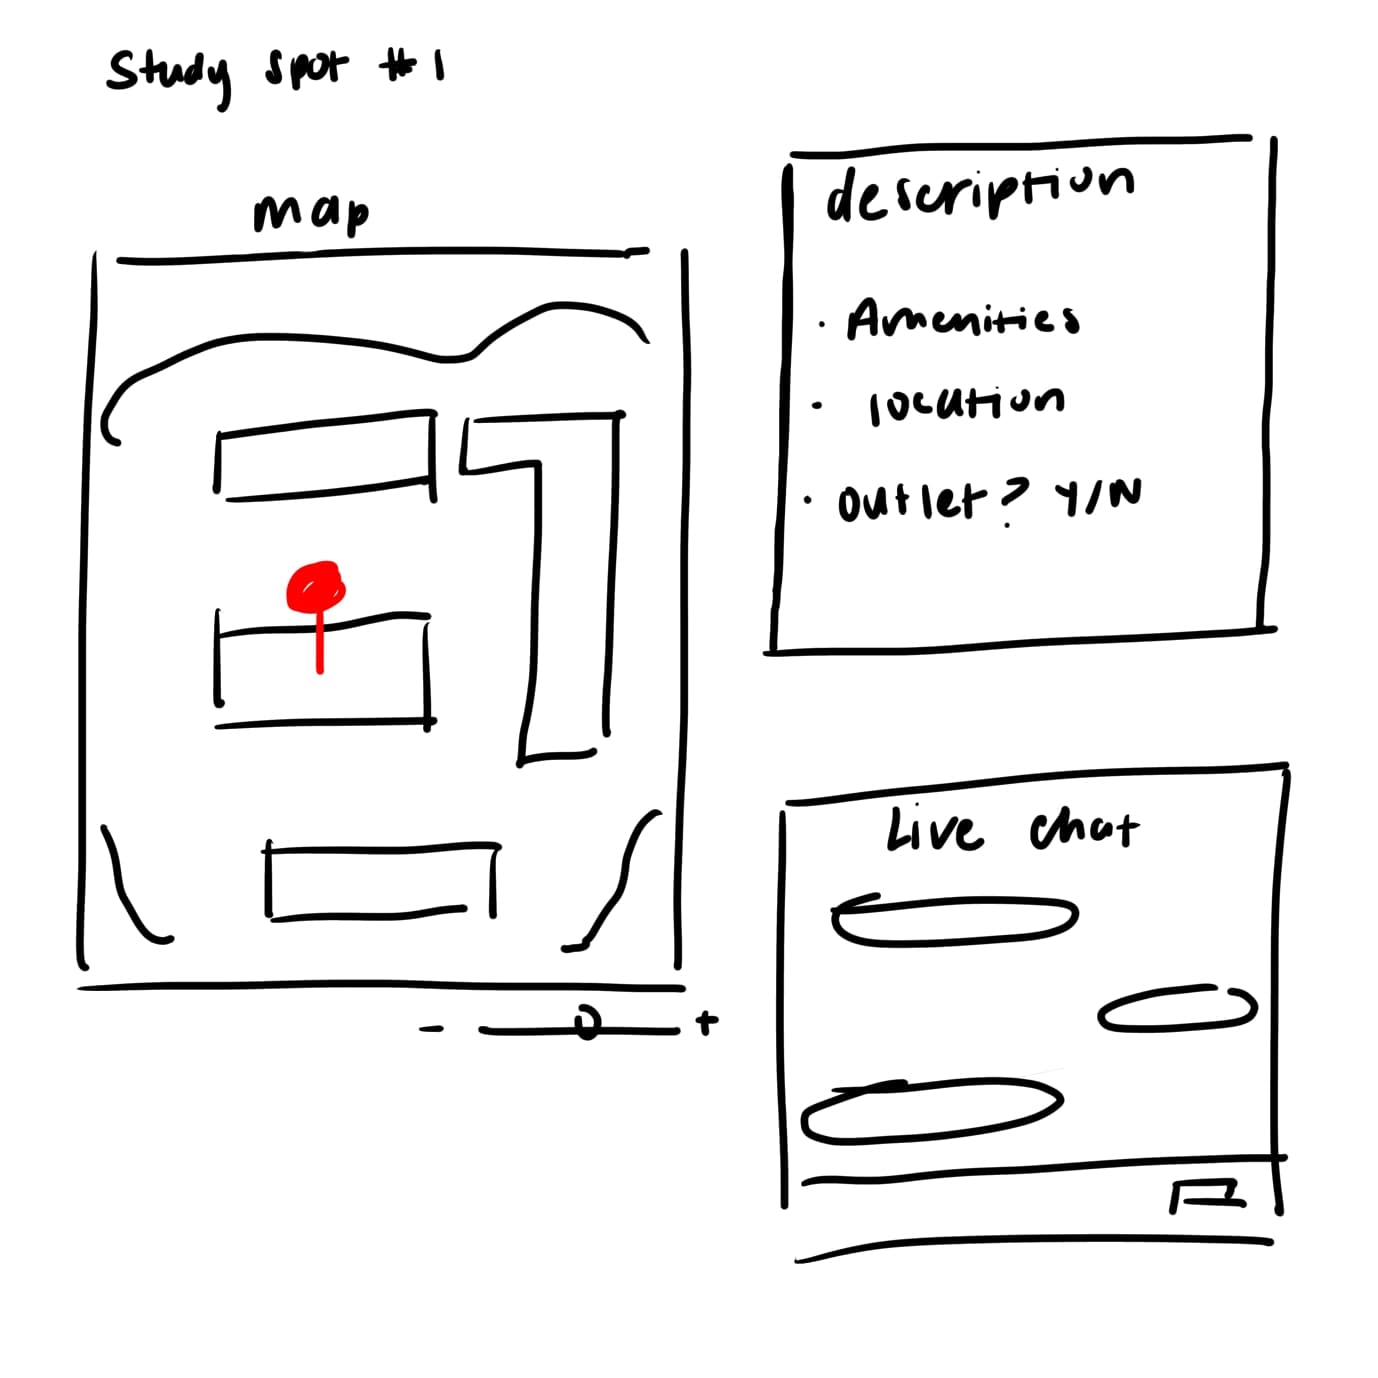 Study spot #1
map
description
· Amenities
· location
· outlet? Y/N
- +
Live chat